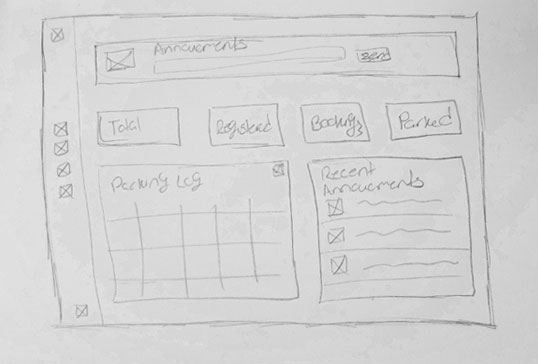 Annoucments
Send
Total
Registered
Bookings
Parked
Parking Log
Recent
Annoucments